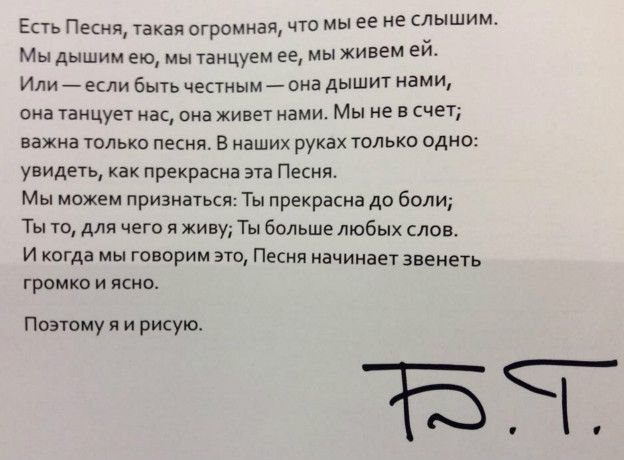 Есть Песня, такая огромная, что мы ее не слышим.
Мы дышим ею, мы танцуем ее, мы живем ей.
Или — если быть честным — она дышит нами,
она танцует нас, она живет нами. Мы не в счет;
важна только песня. В наших руках только одно:
увидеть, как прекрасна эта Песня.
Мы можем признаться: Ты прекрасна до боли;
Ты то, для чего я живу; Ты больше любых слов.
И когда мы говорим это, Песня начинает звенеть
громко и ясно.
Поэтому я и рисую.
Б.Г.